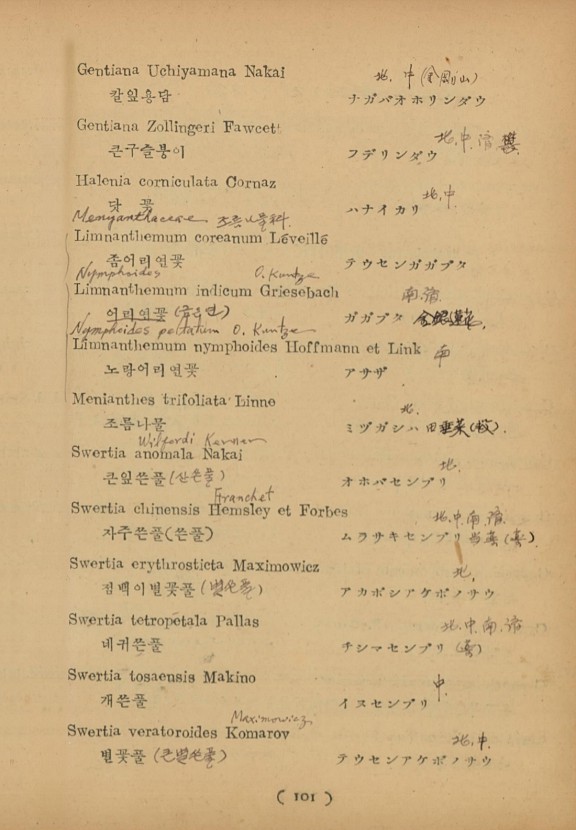 Gentiana Uchiyamana Nakai 北, 中 (金剛山)
칼잎용담 ナガバオホリンダウ
Gentiana Zollingeri Fawcet 北, 中, 濟
큰구슬붕이 フデリンダウ
Halenia corniculata Cornaz 北, 中
닷 꽃 ハナイカリ
Menyanthaceae 조름나물과
Limnanthemum coreanum Léveillé
좀어리연꽃 テウセンガガブタ
Nymphoides O. Kuntze
Limnanthemum indicum Griesebach 南, 濟
어리연꽃 ガガブタ 金銀蓮花
Nymphoides peltatum O. Kuntze
Limnanthemum nymphoides Hoffmann et Link 中
노랑어리연꽃 アサザ
Menianthes trifoliata Linne 北,
조름나물 ミヅガシハ
Wilfordi Kerner
Swertia anomala Nakai 北,
큰잎쓴풀 オホバセンブリ
Franchet
Swertia chinensis Hemsley et Forbes 北, 中, 南, 濟
자주쓴풀(쓴풀) ムラサキセンブリ 当薬
Swertia erythrosticta Maximowicz 北,
점백이별꽃풀 アカボシアケボノサウ
Swertia tetropetala Pallas 北, 中, 南, 濟
네귀쓴풀 チシマセンブリ
Swertia tosaensis Makino 中,
개쓴풀 イヌセンブリ
Maximowicz
Swertia veratoroides Komarov 北, 中,
별꽃풀 テウセンアケボノサウ
( 101 )